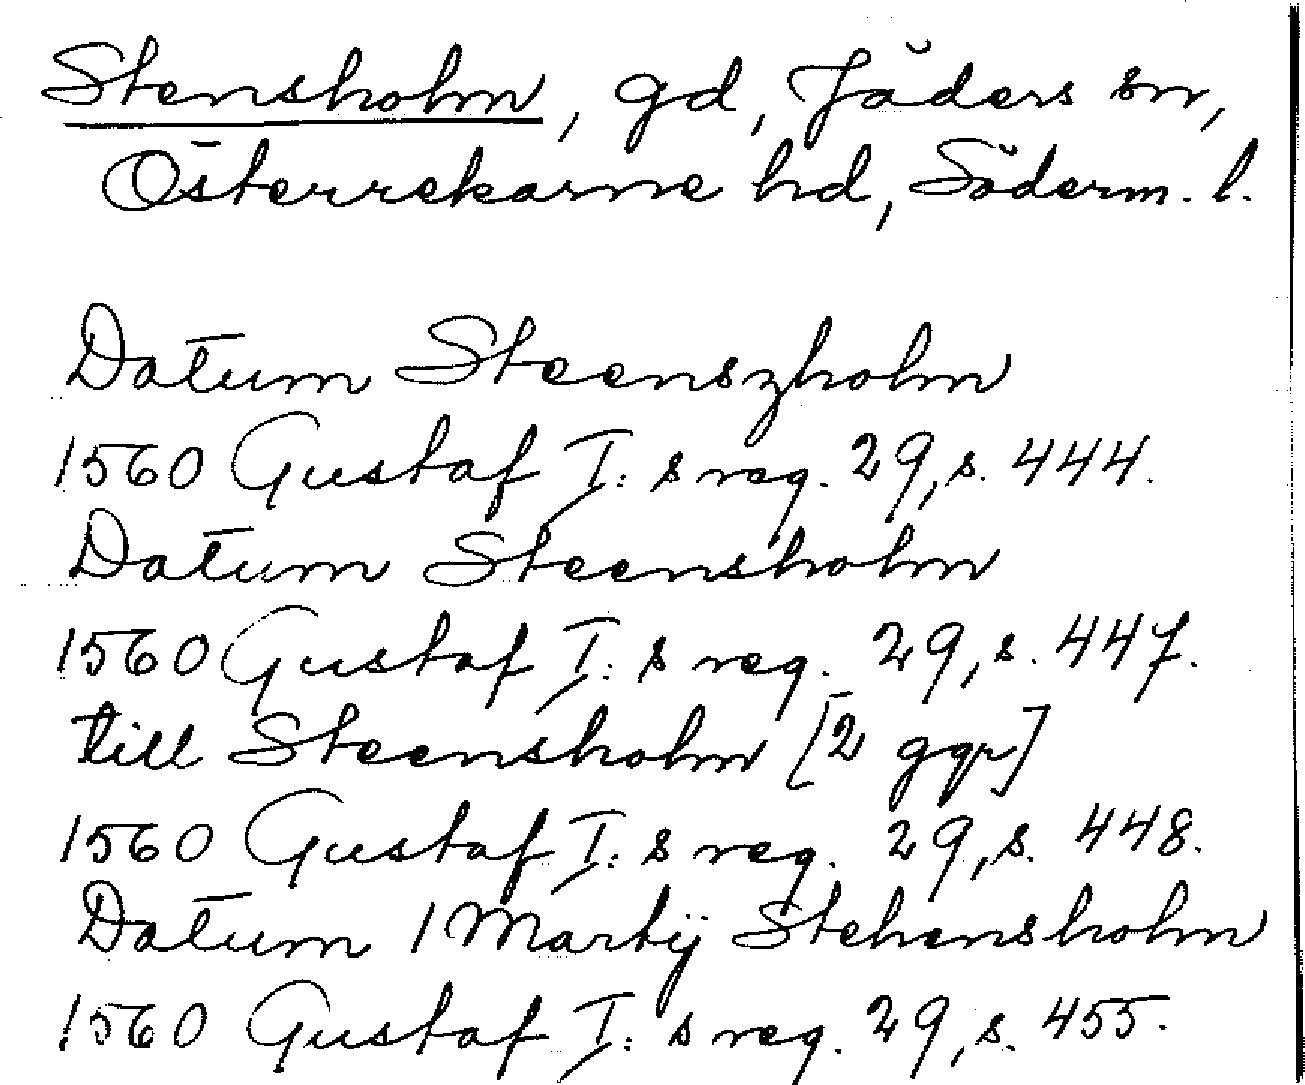 Stensholm, gd, Jäders sn,
Österrekarne hd, Söderm. l.
Datum Steenszholm
1560 Gustaf I:s reg. 29, s. 444.
Datum Steensholm
1560 Gustaf I:s reg. 29, s. 447.
till Steensholm [2 ggr]
1560 Gustaf I:s reg. 29, s. 448.
Datum 1 Martij Stehensholm
1560 Gustaf I:s reg. 29, s. 455.